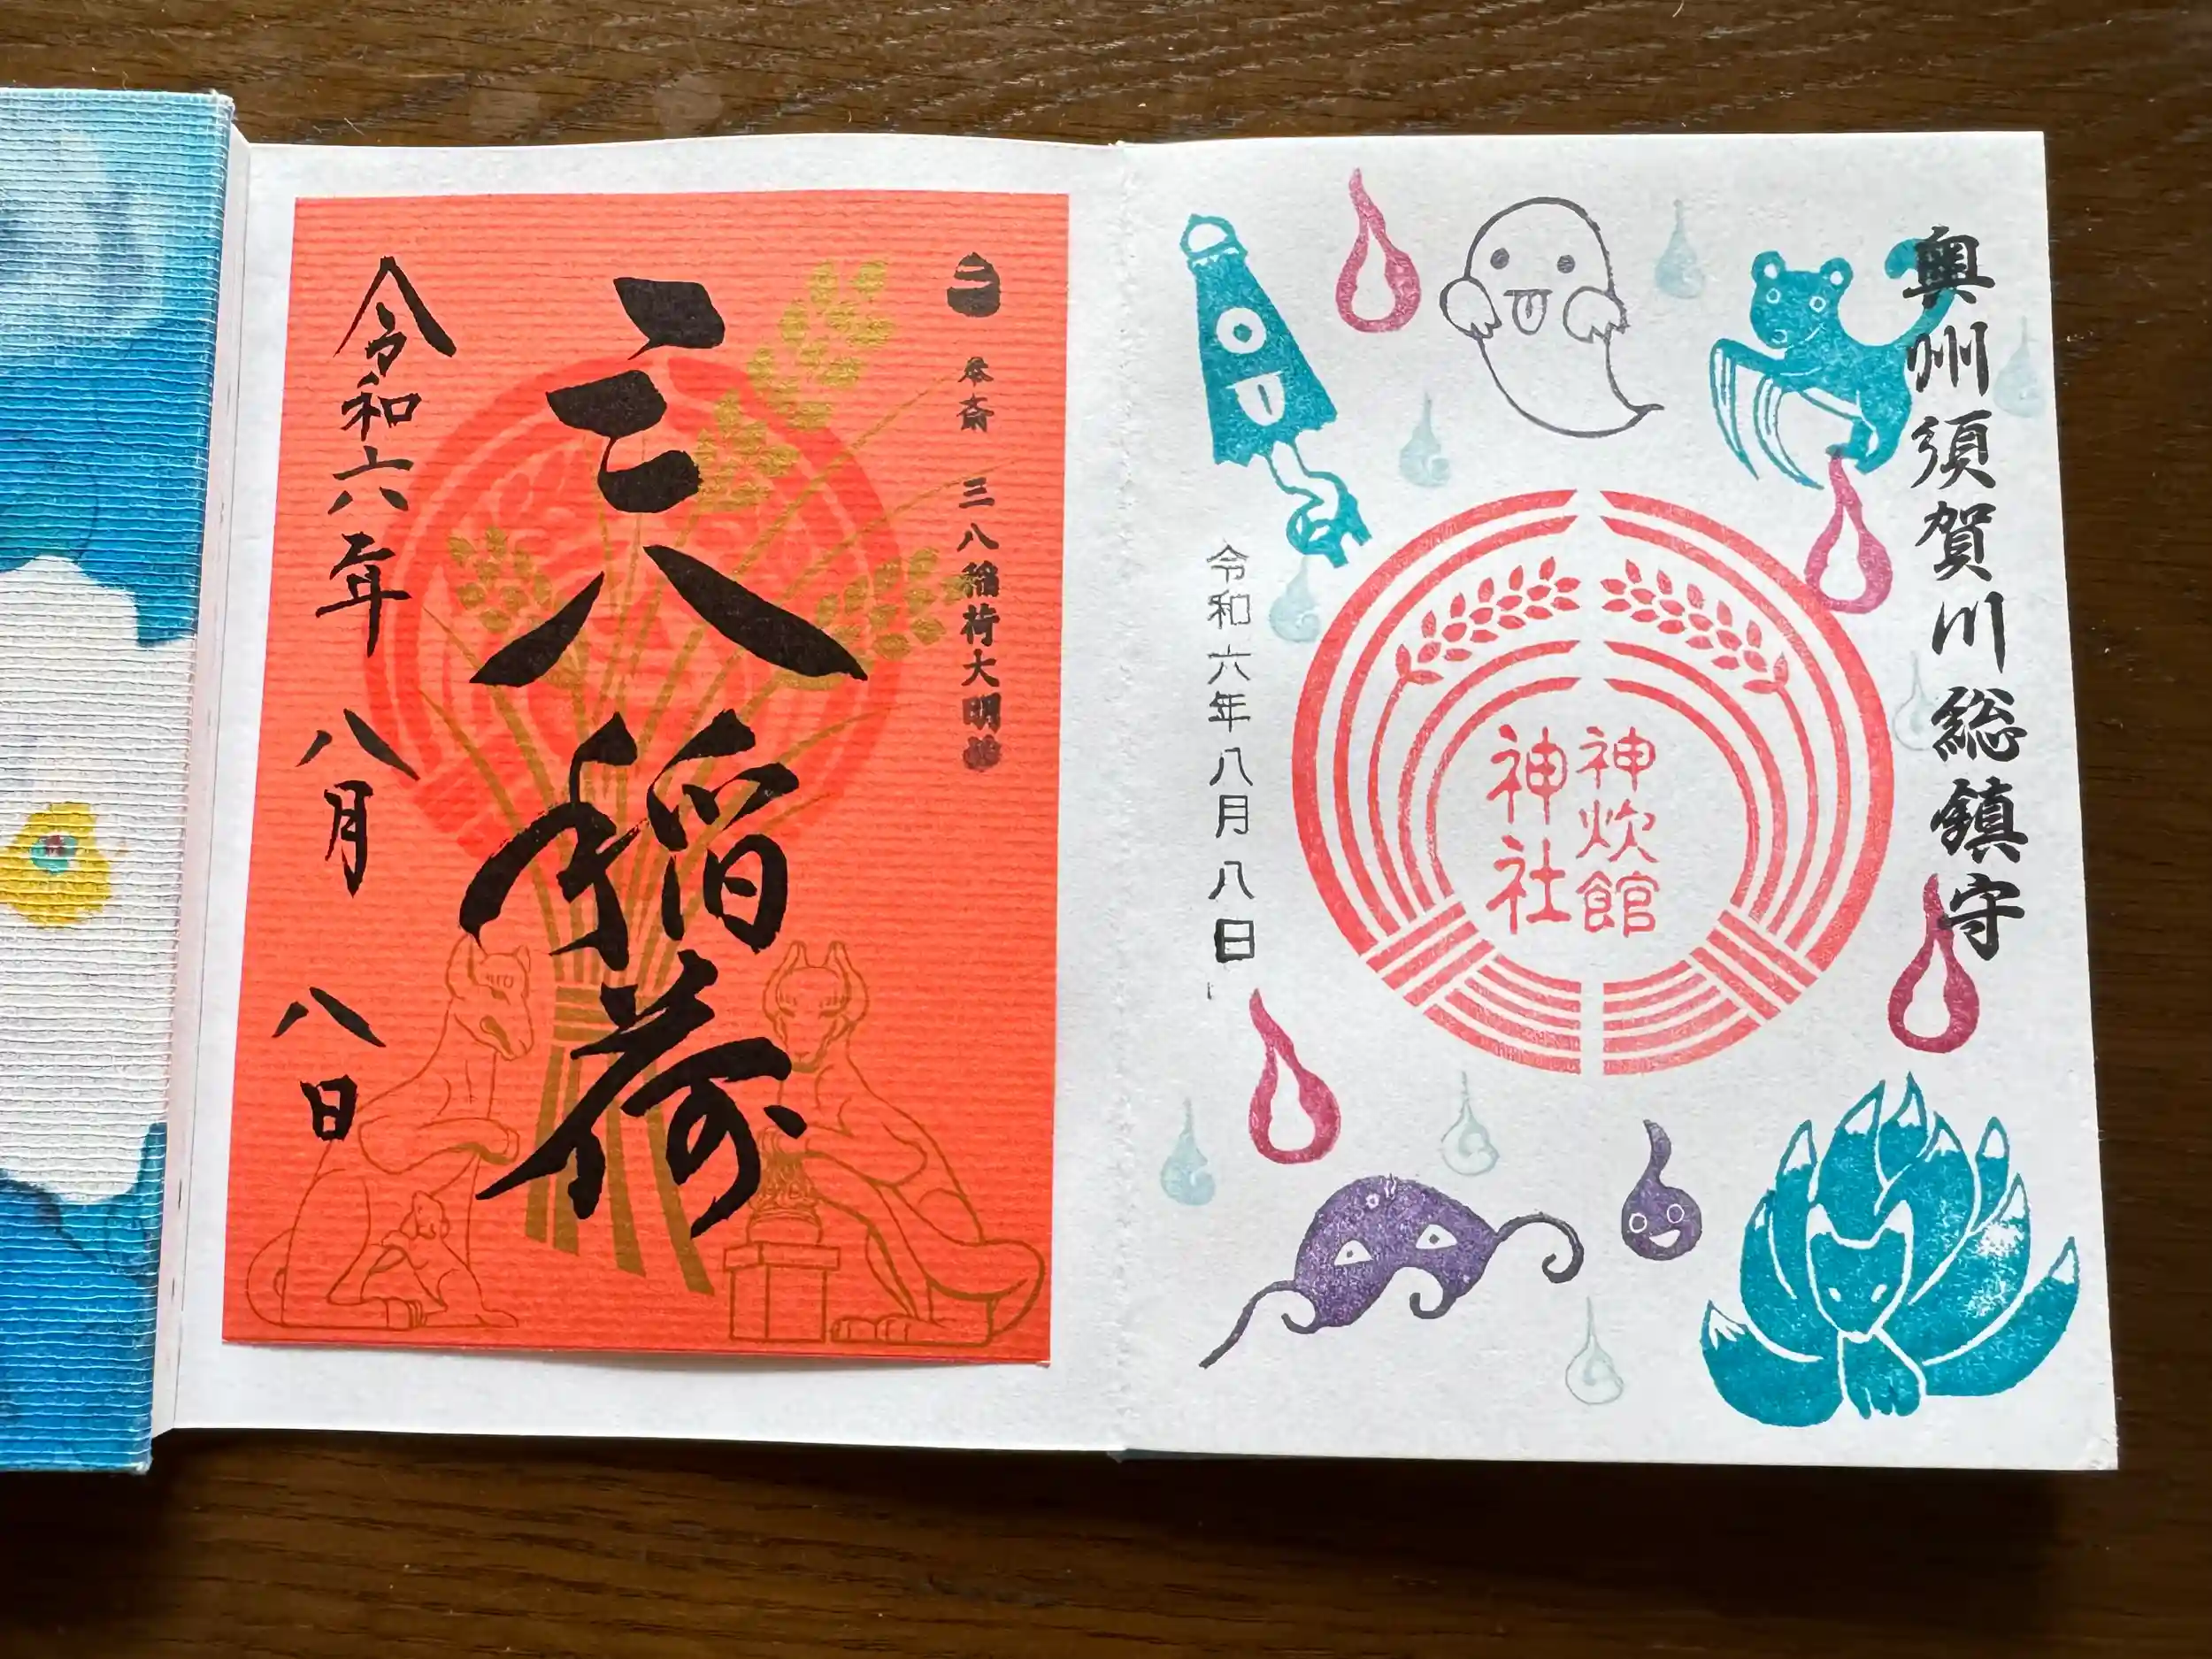 奥州須賀川総鎮守
神炊館
神社
令和六年八月八日
三八稲荷大明神
三八稲荷
令和六年八月八日